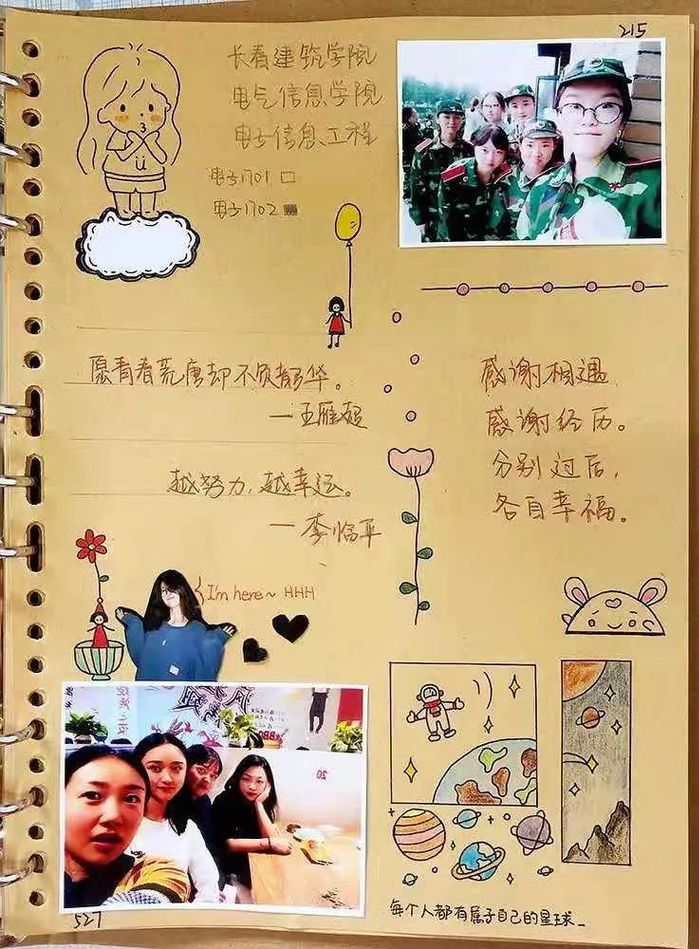 215
长春建筑学院
电气信息学院
电子信息工程
电子1701 □
电子1702
愿青春荒唐却不负韶华。
—王雁超
越努力,越幸运。
—李临平
感谢相遇
感谢经历。
分别过后,
各自幸福。
I'm here~ HHH
BBQ
20
527
每个人都有属于自己的星球_